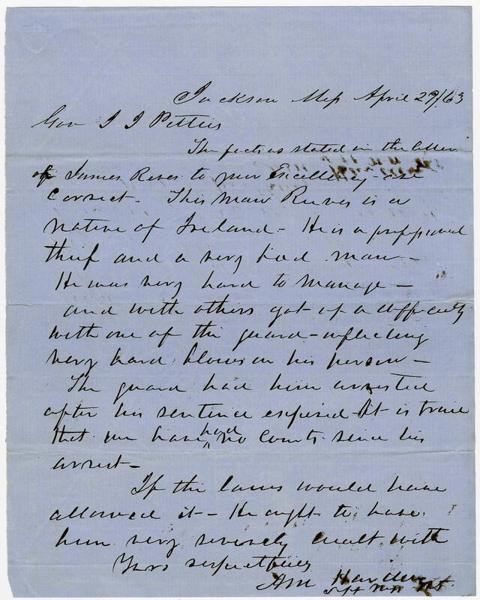 Jackson Miss April 29/63
Gov J J Pettus
The facts as stated in the letter
of James Reves to your Excellency are
correct - This man Reeves is a
native of Ireland - He is a proffessional
thief and a very bad man -
He was very hard to manage -
and with others got up a difficulty
with one of the guard - inflicting
very hard blows on his person -
The guard had him arrested
after his sentence expired It is true
that we have had no courts since his
arrest -
If the laws would have
allowed it - He ought to have
him very severely dealt with
Yours respectfully
Hardin
Supt